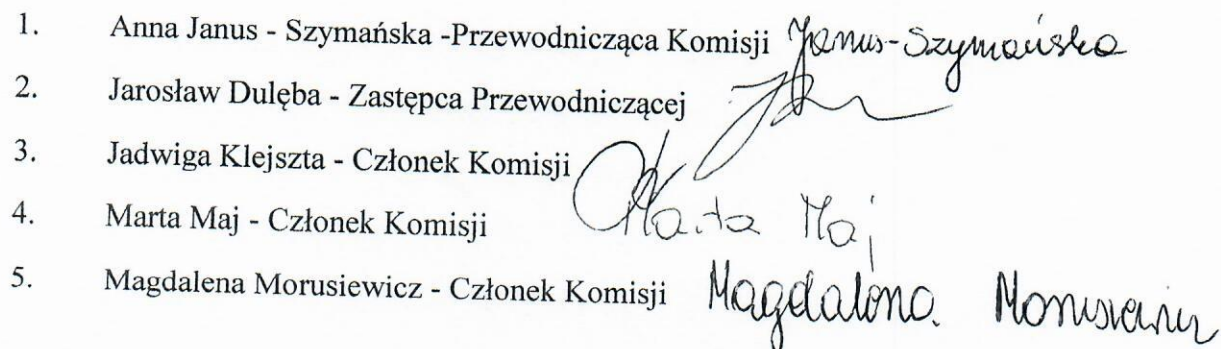 1. Anna Janus - Szymańska -Przewodnicząca Komisji Janus-Szymańska
2. Jarosław Dulęba - Zastępca Przewodniczącej
3. Jadwiga Klejszta - Członek Komisji
4. Marta Maj - Członek Komisji Marta Maj
5. Magdalena Morusiewicz - Członek Komisji Magdalena Morusiewicz